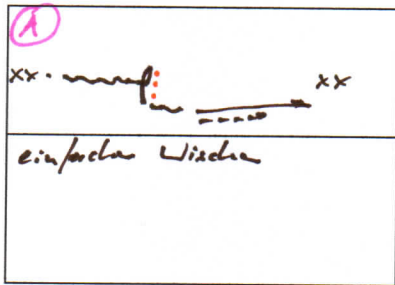 xx xx
einfaches Wischen